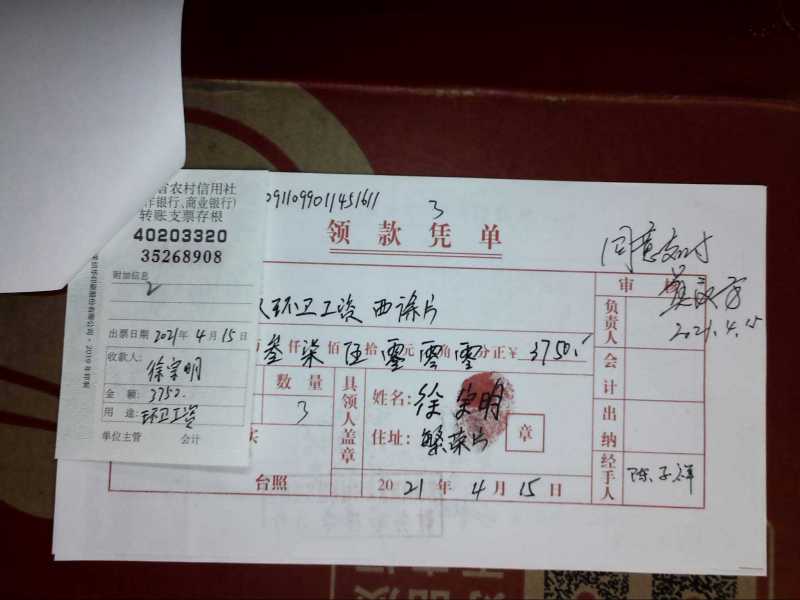 省农村信用社
作银行、商业银行)
转账支票存根
40203320
35268908
附加信息
2
出票日期 2021年 4月 15日
收款人:
徐宗明
金 额: 3750.
用 途: 环卫工资
单位主管 会计
0911099011451611
3
领款凭单
环卫工资 西涤片
叁仟柒佰伍拾零元零角零分正¥ 3750.
数量
3
具领人盖章
姓名: 徐宗明
住址: 繁荣片
章
台照
2021年 4月 15日
同意支付
2021.4.15
审
负责人
会计
出纳
经手人
陈子祥